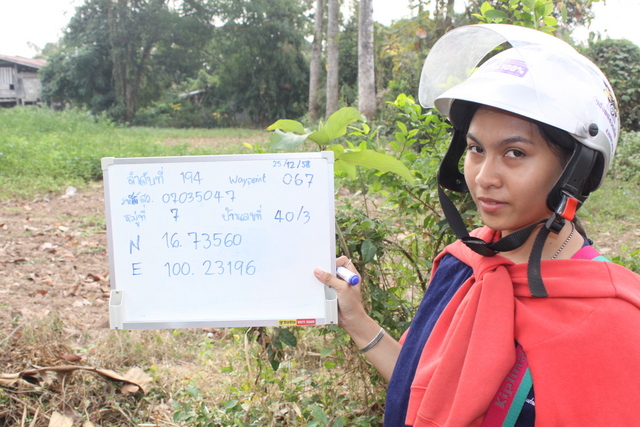 25/12/58
ลำดับที่ 194 Waypoint 067
รหัส สง. 07035047
หมู่ที่ 7 บ้านเลขที่ 40/3
N 16.73560
E 100.23196
100%
Kipling